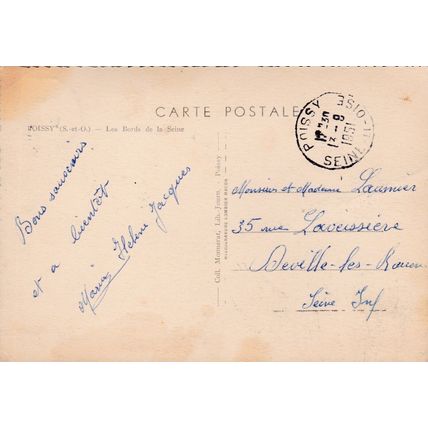 CARTE POSTALE
POISSY (S.-et-O.) — Les Bords de la Seine
POISSY
SEINE-ET-OISE
17-30
13-8
1951
Bons souvenirs
et a bientôt
Marie Hélène Jacques
Coll. Monnerat, Lib. Journ. Poissy
Monsieur et Madame Launier
35 rue Lavoissière
Deville-les-Rouen
Seine Inf